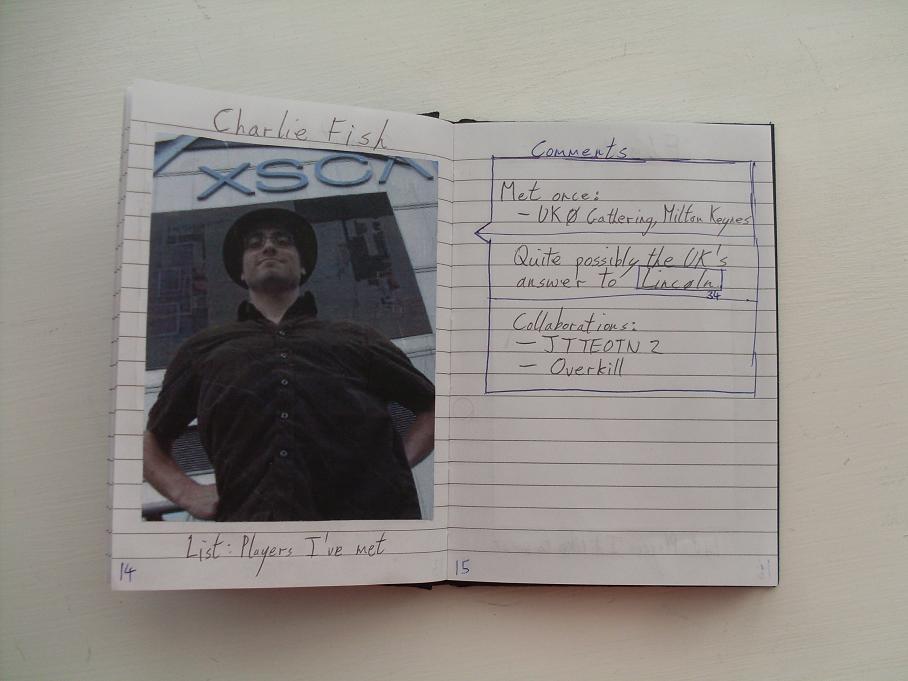 Charlie Fish
XSC
List: Players I've met
14
Comments
Met once:
– UKØ Gathering, Milton Keynes
Quite possibly the UK's
answer to Lincøln
34
Collaborations:
– JTTEOTN 2
– Overkill
15